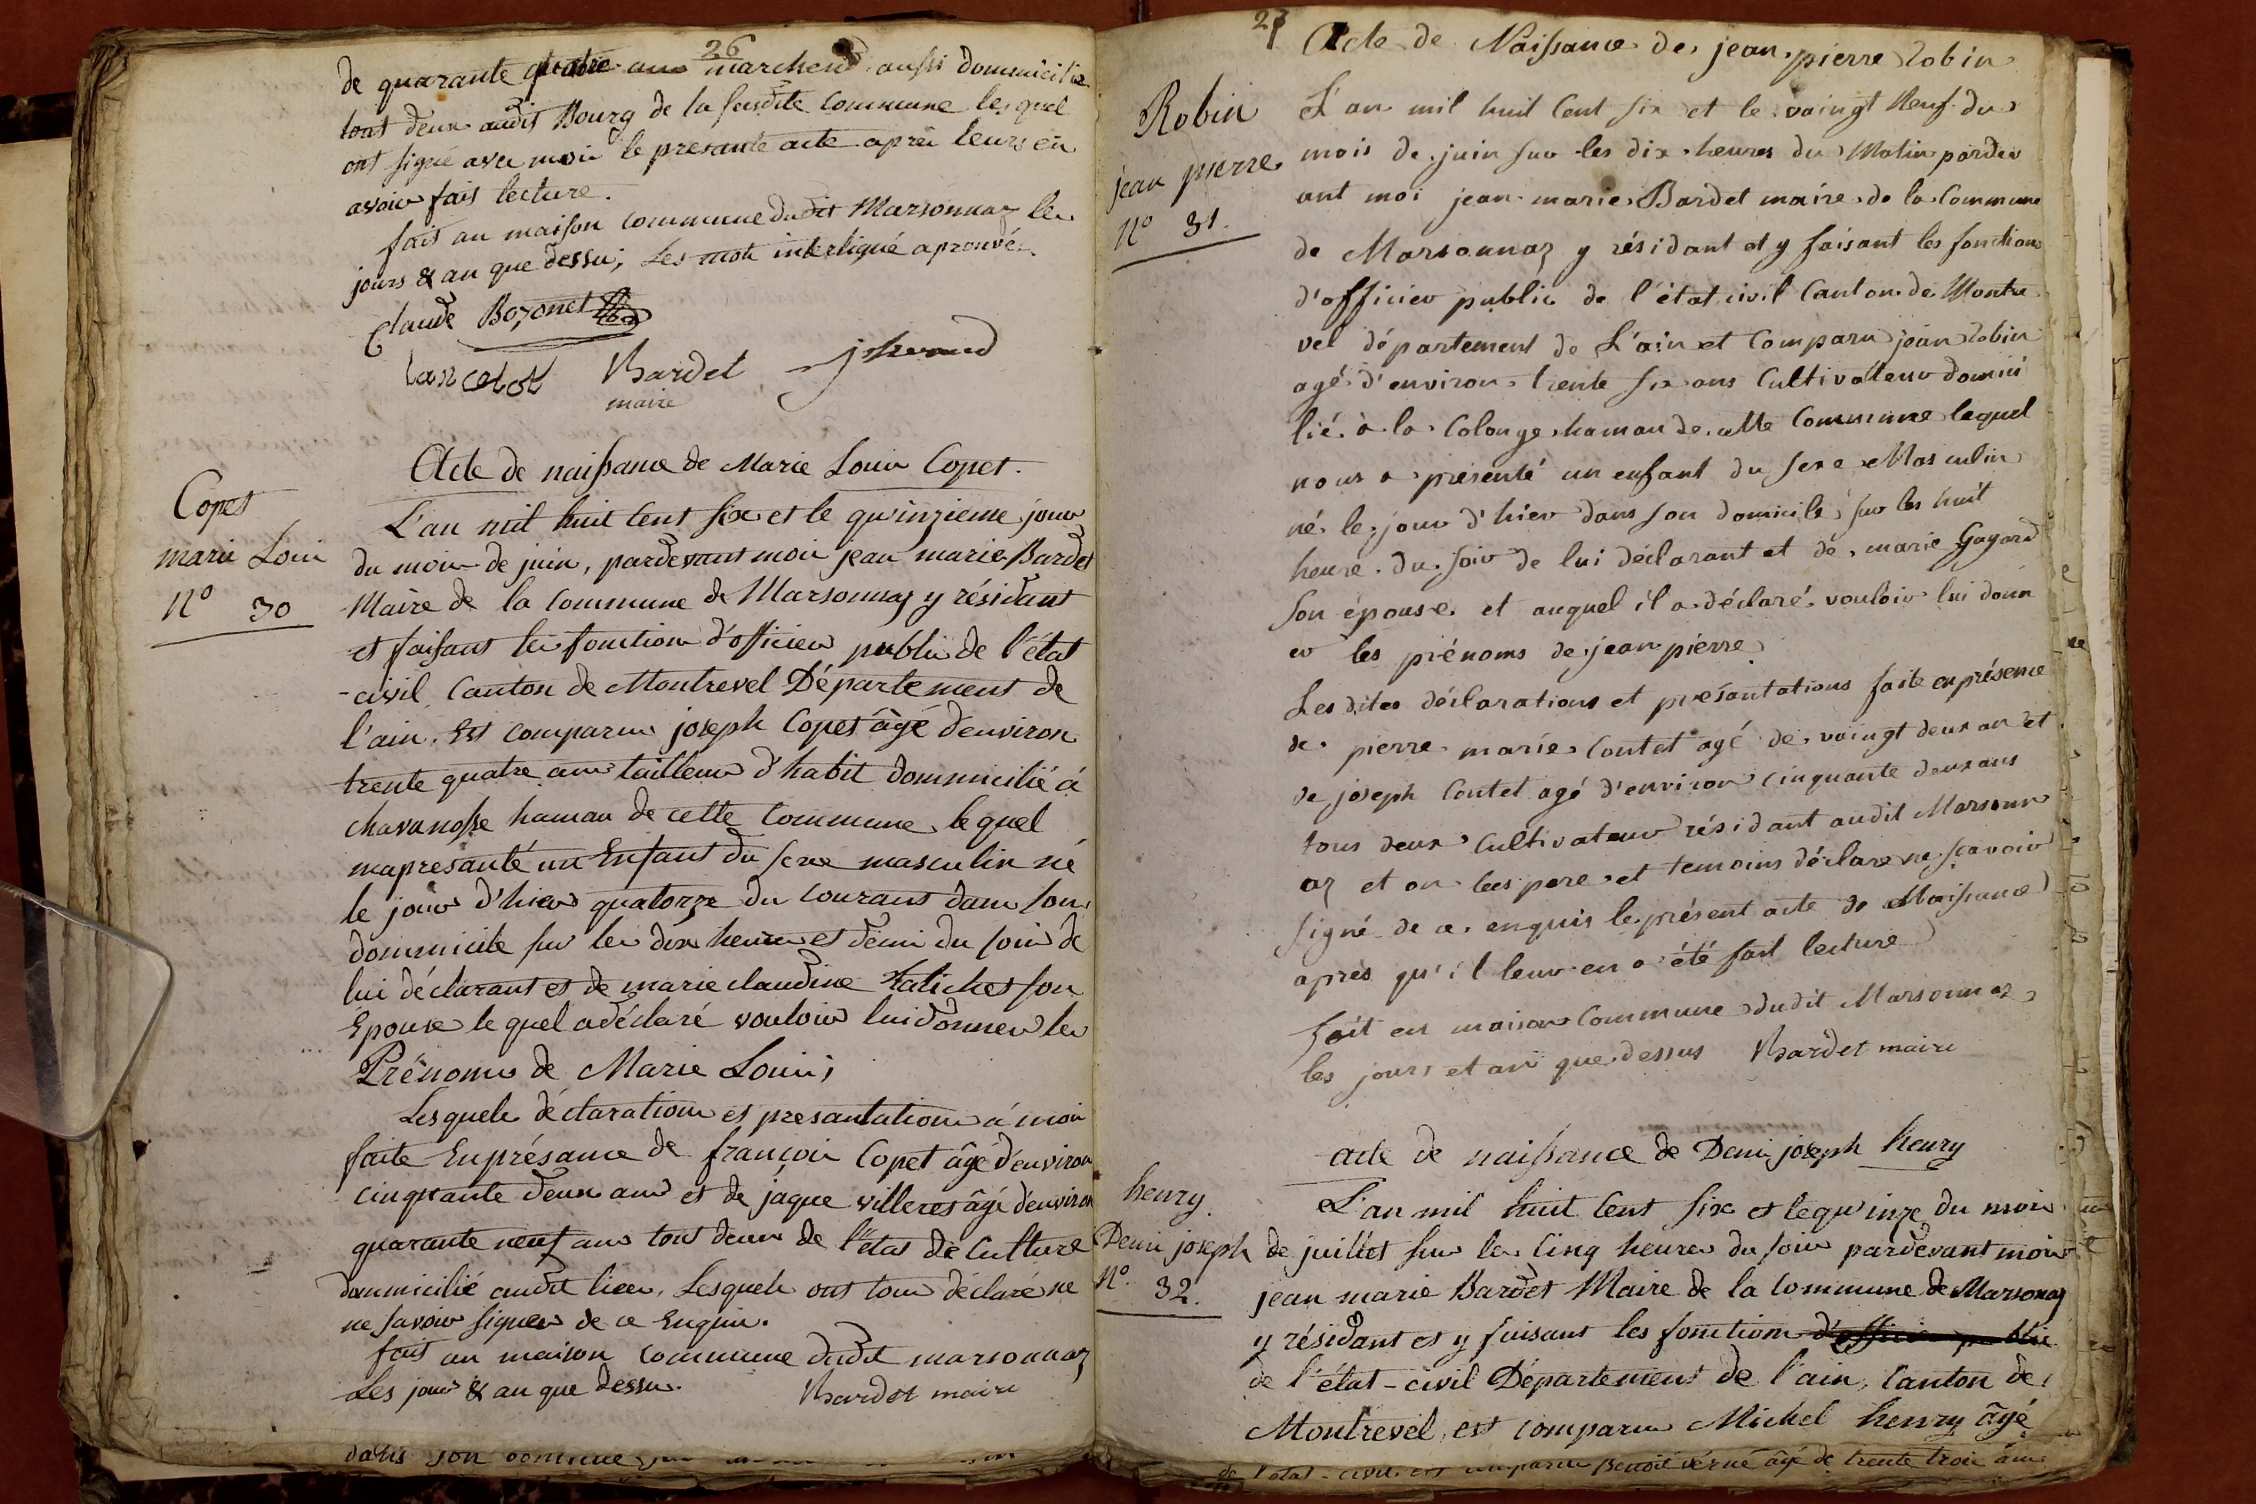 26
de quarante quatre ans marchend aussi dommicilié
tout deux audit Bourg de la susdite Commune lesquel
ont signié avec moi le presante acte aprèi leurs en
avoir fais lecture.
fait au maison Commune dudit Marsonnaz les
jours & an que dessu; Les mots interligné aprouvé.
Claude Bozonet
Lancelot Bardet
maire
Copet
marie Loui
N° 30
Acte de naissance de Marie Louis Copet.
L'an mil huit Cent six et le quinzieme jour
du moi de juin, pardevant moi jean marie Bardet
Maire de la Commune de Marsonnaz y résidant
et faisant les fonction d'officier public de l'état
-civil, Canton de Montrevel Département de
l'ain. Est Comparu joseph Copet âgé d'environ
trente quatre ans tailleur d'habit dommicilié à
chavanosse hamau de cette Commune, lequel
mapresanté un Enfant du sexe masculin né
le jour d'hier quatorze du Courant dans son
dommicile sur les dix heures et demi du soir de
lui déclarant et de marie claudine son
Epouse lequel a déclaré vouloir lui donner les
Prénoms de Marie Louis;
Lesquele déclaration et presantation à moi
faite Enprésance de françoi Copet âgé d'environ
cinquante deux ans et de jaque villeret âgé d'environ
quarante neuf ans tout deux de l'état de Culture
dommicilié audit lieu, Lesquele ont tous déclaré ne
ne savoir signer de ce Enquie.
fait au maison Commune dudit marsonnaz
Les jour & an que dessu. Bardet maire
dans son
27
Acte de Naissance de jean pierre Robin
Robin
jean pierre
N° 31.
L'an mil huit Cent six et le vaingt Neuf du
mois de juin sur les dix heures du Matin pardev
ant moi jean marie Bardet maire de la Commune
de Marsonnaz y résidant et y faisant les fonctions
d'officier public de l'état civil Canton de Montre
vel département de L'ain et Comparu jean Robin
agé d'environ trente six ans Cultivateur domici
lié à la Colonge hamau de cette Commune lequel
nous a présenté un enfant du sexe Masculin
né le jour d'hier dans son domicile sur les huit
heure du soir de lui déclarant et de marie Gayard
son épouse et auquel il a déclaré vouloir lui donn
er les prénoms de jean pierre
Les dites déclarations et presantations faite enprésence
de pierre marie Contet agé de vaingt deux an et
de joseph Contet agé d'environ cinquante deux ans
tous deux Cultivateur résidant audit Marsonn
az et on lees pere et temoins déclare ne sçavoir
signé de ce enquis le présent acte de Naissance
après qu'il leur en a été fait lecture
Fait en maison Commune dudit Marsonnaz
les jours et an que dessus Bardet maire
acte de naissance de Deni joseph henry
henry.
Deni joseph
N°. 32.
L'an mil huit Cent six et lequ'inze du moi
de juillet sur les Cinq heures du soir pardevant moi
jean marie Bardet Maire de la Commune de Marsonaz
y résidant et y faisant les fonction d'officier public
de l'état-civil Département de l'ain, Canton de
Montrevel, est Comparu Michel henry âgé
de l'état-civil est comparu Benoit âgé de trente troi ans